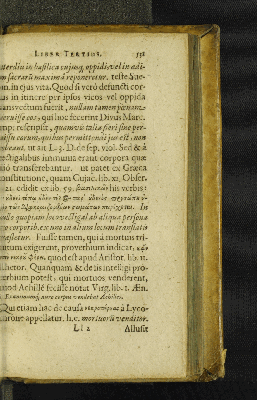 LIBER TERTIUS. 531
terdiu in basilica cujusq; oppidi, vel in adi-
um sacrarū maximā reponeretur. teste Sue-
in ejus vita. Quod si verò defuncti cor-
us in itinere per ipsos vicos vel oppida
ansvectum fuerit, nullam tamen pœnam
eruisse eos, qui hoc fecerint Divus Marc.
mp: rescripsit, quamvis talia fieri sine per-
issu eorum, quibus permittendi jus est, non
ebeant. ut ait L. 3. D. de sep. viol. Sed & à
ectigalibus immunia erant corpora quæ
uò transferebantur. ut patet ex Græca
onstitutione, quam Cujac. lib. XI. Obser.
21. edidit ex lib. 59. his verbis:
In
odis quopiam loco vectigal ab aliqua persona
o corporib. ex uno in alium locum translatis
ræstetur. Fuisse tamen, qui à mortuis tri-
utum exigerent, proverbium indicat,
quod est apud Aristot. lib. II.
Rhetor. Quanquam & de iis intelligi pro-
verbium potest, qui mortuos venderent,
quod Achillē fecisse notat Virg. lib. I. Æn.
Exanimumq; auro corpus vendebat Achilles.
Qui etiam hac de causa à Lyco-
phrone appellatur. h.e. mortuorū venditor.
Ll 2 Allusit